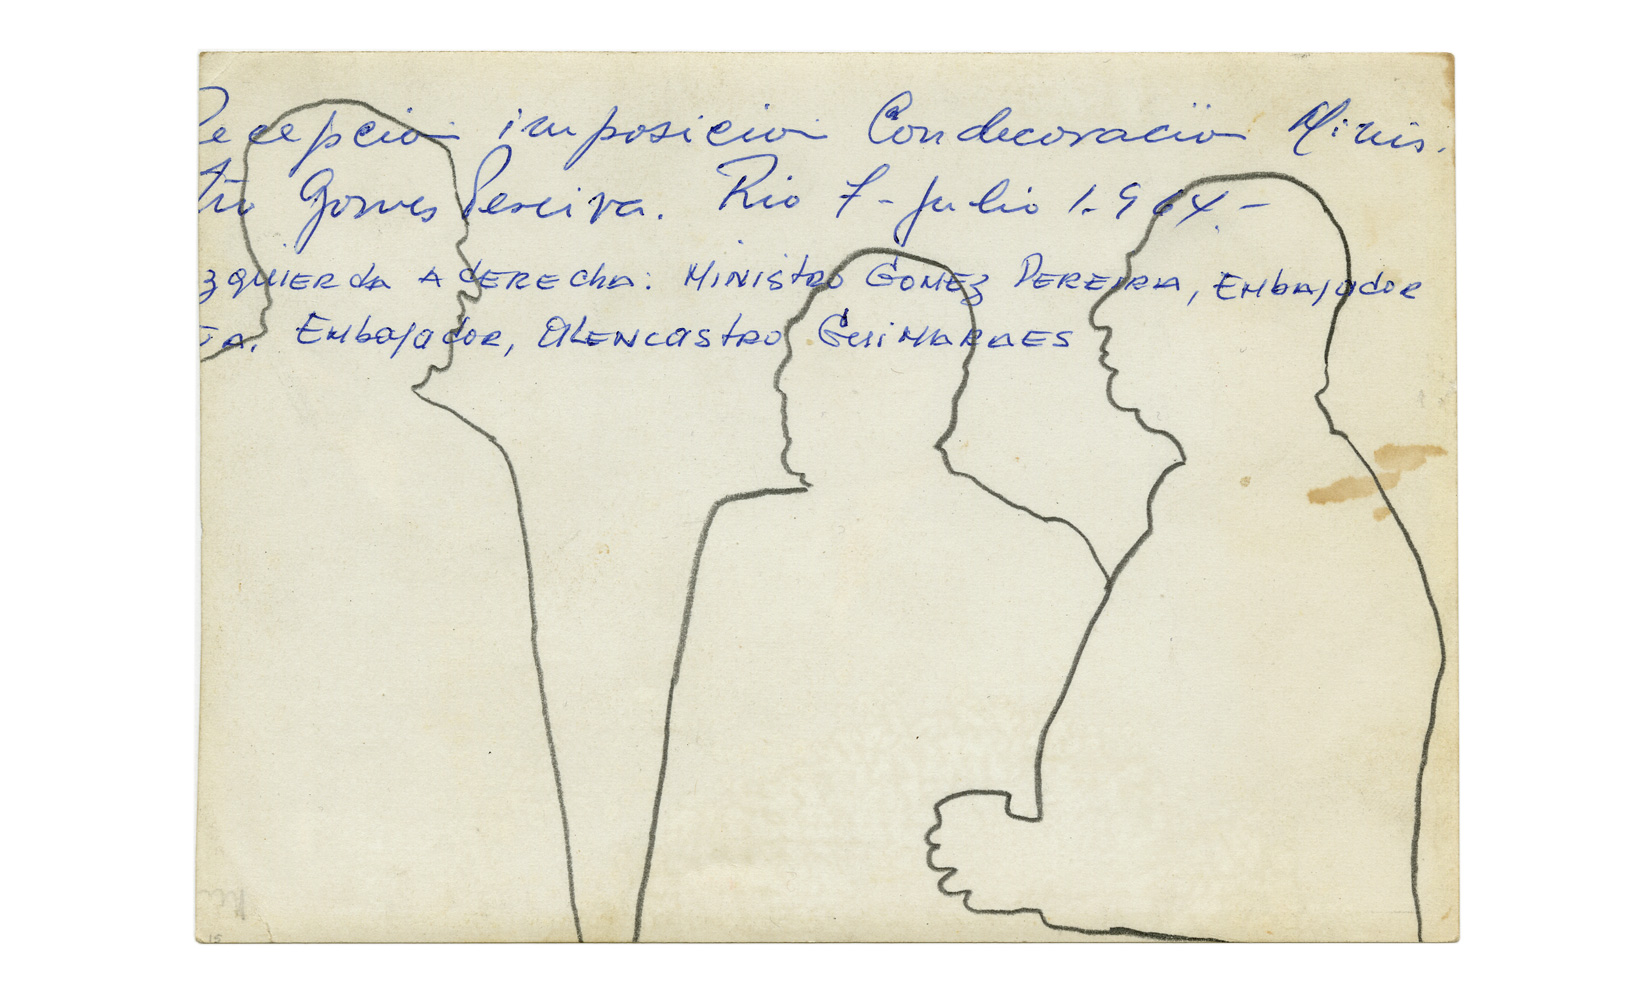 Recepcion imposicion Condecoración Minis.
tro Gomes Pereira. Rio 7- Julio 1.964-
zquierda A derecha: Ministro Gomez Pereira, Embajador
Embajador, Alencastro Guimaraes